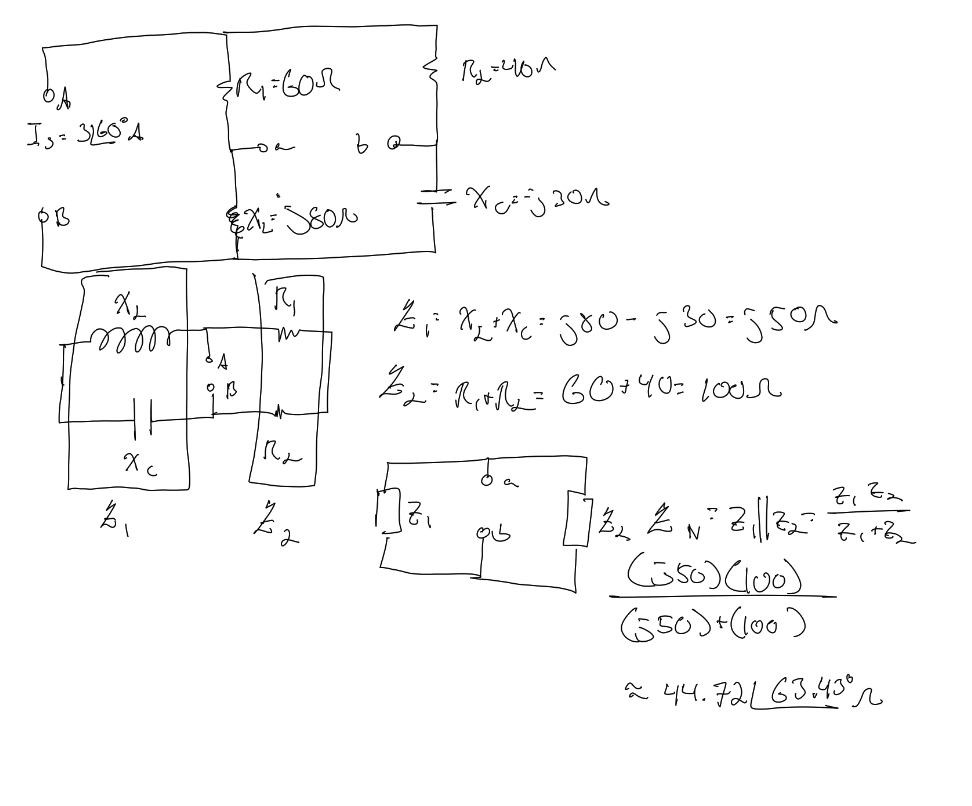 R₁=60Ω
R₂=40Ω
A
I₃= 3∠60° A
a
b
B
X_L= j80Ω
X_C=-j30Ω
X_L
R₁
A
B
X_C
R₂
Z₁
Z₂
Z₁= X_L+X_C= j80 - j30= j50Ω
Z₂= R₁+R₂= 60+40= 100Ω
a
Z₁
b
Z₂
Z_N= Z₁||Z₂= Z₁ Z₂ / Z₁+Z₂
(j50)(100)
(j50)+(100)
≈ 44.72∠63.43°Ω